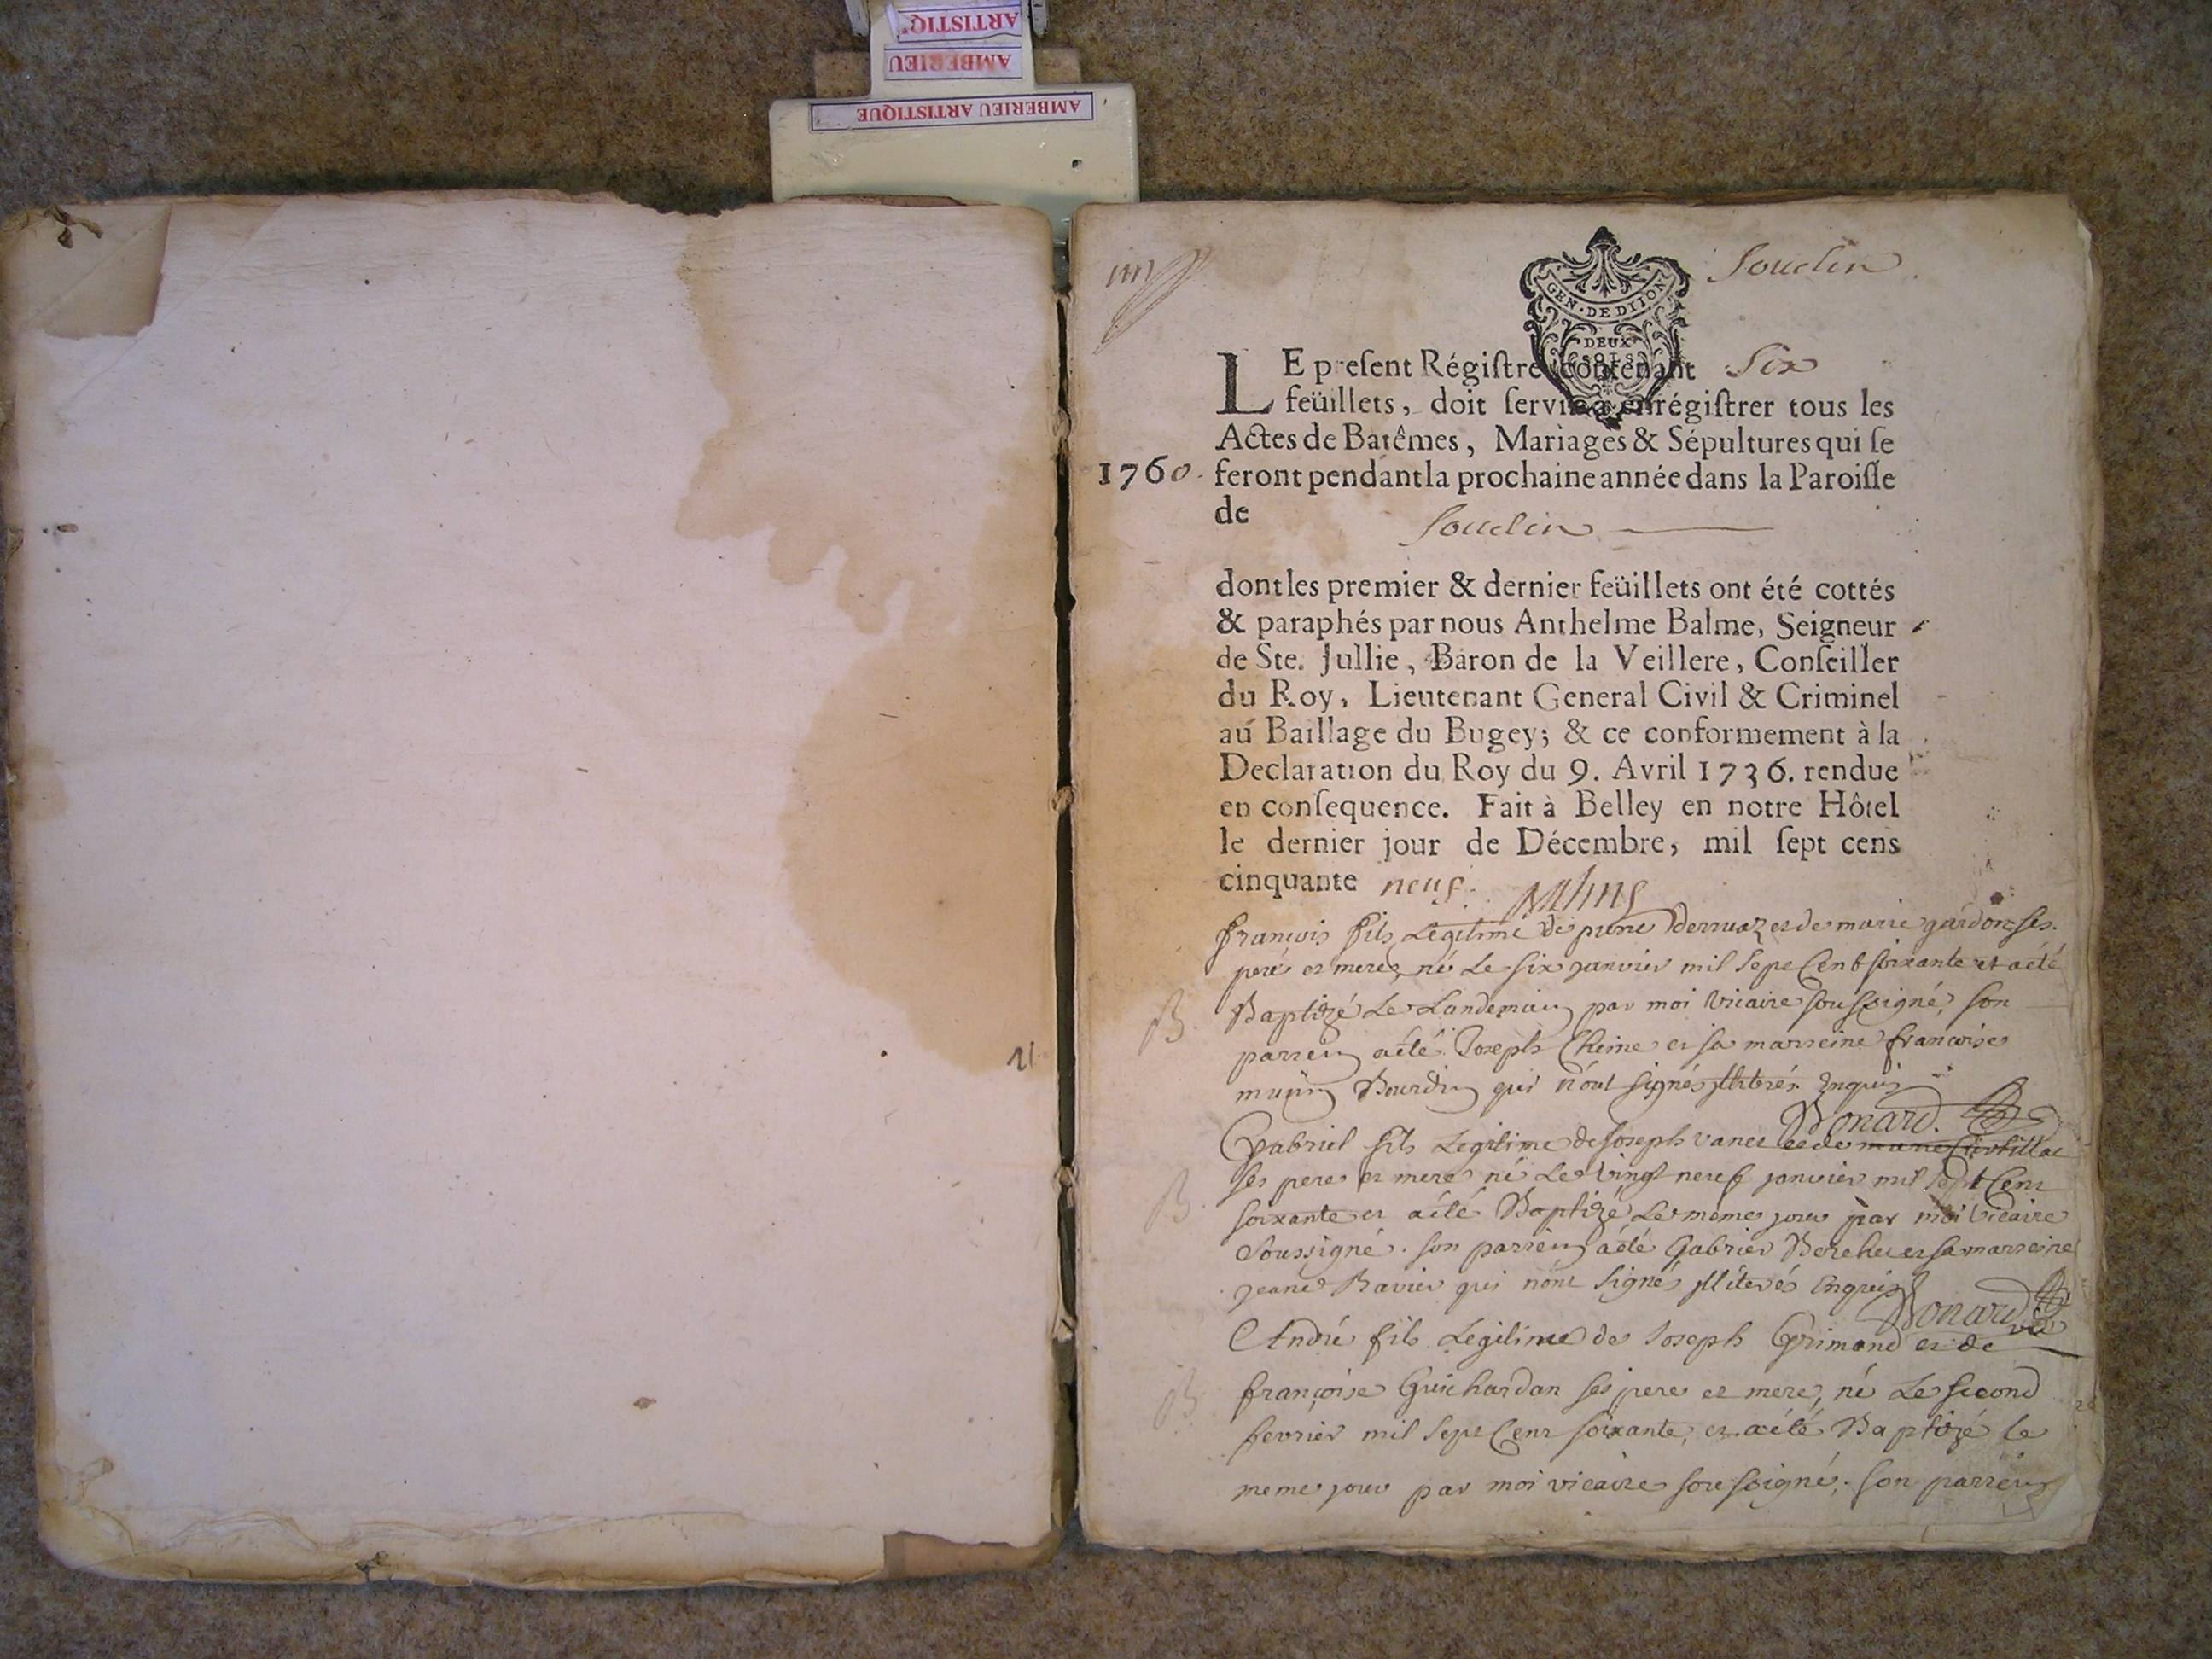 ARTISTIQ
AMBERIEU
AMBERIEU ARTISTIQUE
GEN · DE DIION
DEUX
SOLS
Souclin
LE present Régistre contenant Six
feüillets, doit servir à enrégistrer tous les
Actes de Batêmes, Mariages & Sépultures qui se
1760. feront pendant la prochaine année dans la Paroisse
de Souclin
dont les premier & dernier feüillets ont été cottés
& paraphés par nous Anthelme Balme, Seigneur
de Ste. Jullie, Baron de la Veillere, Conseiller
du Roy, Lieutenant General Civil & Criminel
au Baillage du Bugey; & ce conformement à la
Declaration du Roy du 9. Avril 1736. rendue
en consequence. Fait à Belley en notre Hôtel
le dernier jour de Décembre, mil sept cens
cinquante neuf.
françois fils Legitime de pierre et de marie gardon ses
pere et mere, né Le six janvier mil sept Cent soixante et a été
B. Baptizé Le Landemain par moi vicaire soussigné, son
parrein a été Joseph Cheine et sa marreine francoise
Bourdin qui n'ont signés illiterés Enquis
Bonard.
Gabriel fils Legitime de Joseph et de marie
B. ses pere et mere né Le vingt neuf janvier mil sept Cent
soixante et a été Baptizé Le meme jour par moi vicaire
Soussigné. son parrein a été Gabriel et sa marreine
jeane Ravier qui n'ont signés illiterés Enquis
Bonard vic
André fils Legitime de Joseph Grimand et de
B. françoise Guichardan ses pere et mere, né Le second
fevrier mil sept Cent soixante, et a été Baptizé le
meme jour par moi vicaire soussigné. son parrein